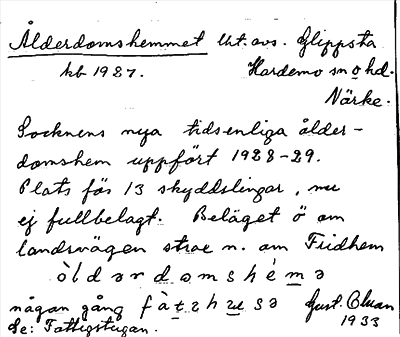 Ålderdomshemmet Urt. avs. Glippsta
kb 1927. Hardemo sn o hd.
Närke.
Socknens nya tidsenliga ålder-
domshem uppfört 1928-29.
Plats för 13 skyddslingar, nu
ej fullbelagt. Beläget ö om
landsvägen strax n. om Fridhem
òldərdomshémə
någon gång fàtəhusə Gust. Olsson
Se: Fattigstugan. 1933